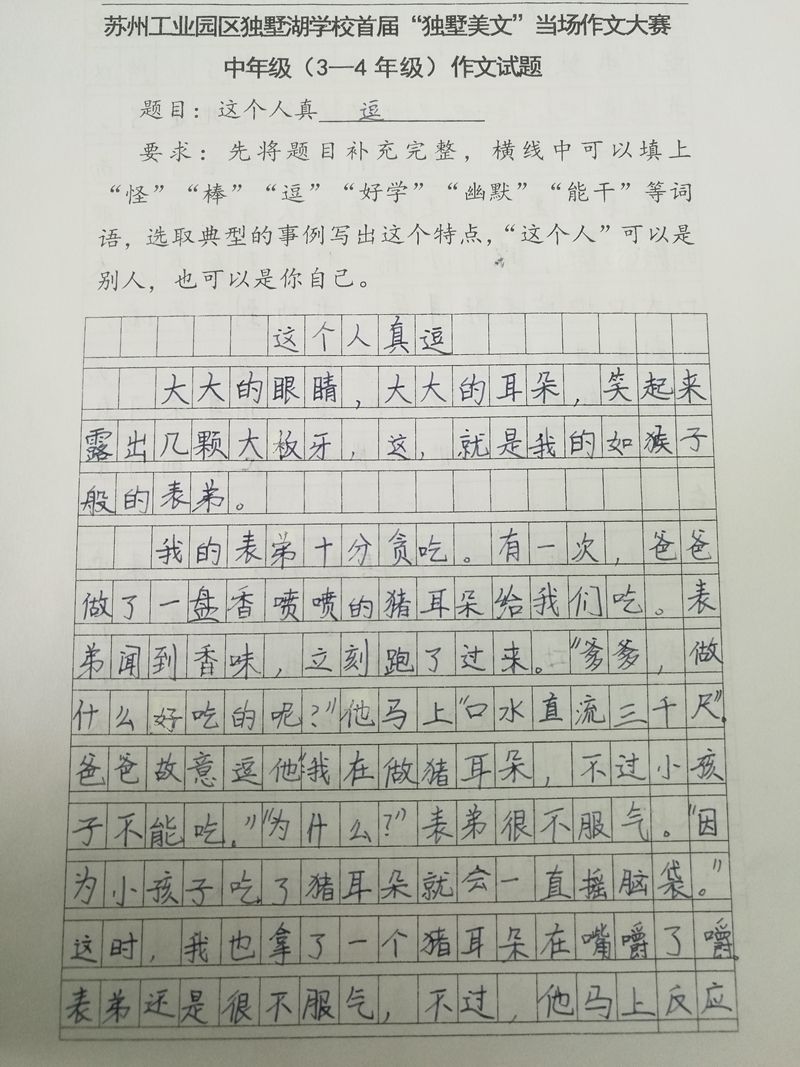 苏州工业园区独墅湖学校首届“独墅美文”当场作文大赛
中年级（3—4 年级）作文试题
题目：这个人真 逗
要求：先将题目补充完整，横线中可以填上
“怪”“棒”“逗”“好学”“幽默”“能干”等词
语，选取典型的事例写出这个特点，“这个人”可以是
别人，也可以是你自己。
这个人真逗
大大的眼睛，大大的耳朵，笑起来
露出几颗大板牙，这，就是我的如猴子
般的表弟。
我的表弟十分贪吃。有一次，爸爸
做了一盘香喷喷的猪耳朵给我们吃。表
弟闻到香味，立刻跑了过来。“爹爹，做
什么好吃的呢？”他马上“口水直流三千尺”。
爸爸故意逗他“我在做猪耳朵，不过小孩
子不能吃。”“为什么？”表弟很不服气。“因
为小孩子吃了猪耳朵就会一直摇脑袋。”
这时，我也拿了一个猪耳朵在嘴嚼了嚼。
表弟还是很不服气，不过，他马上反应